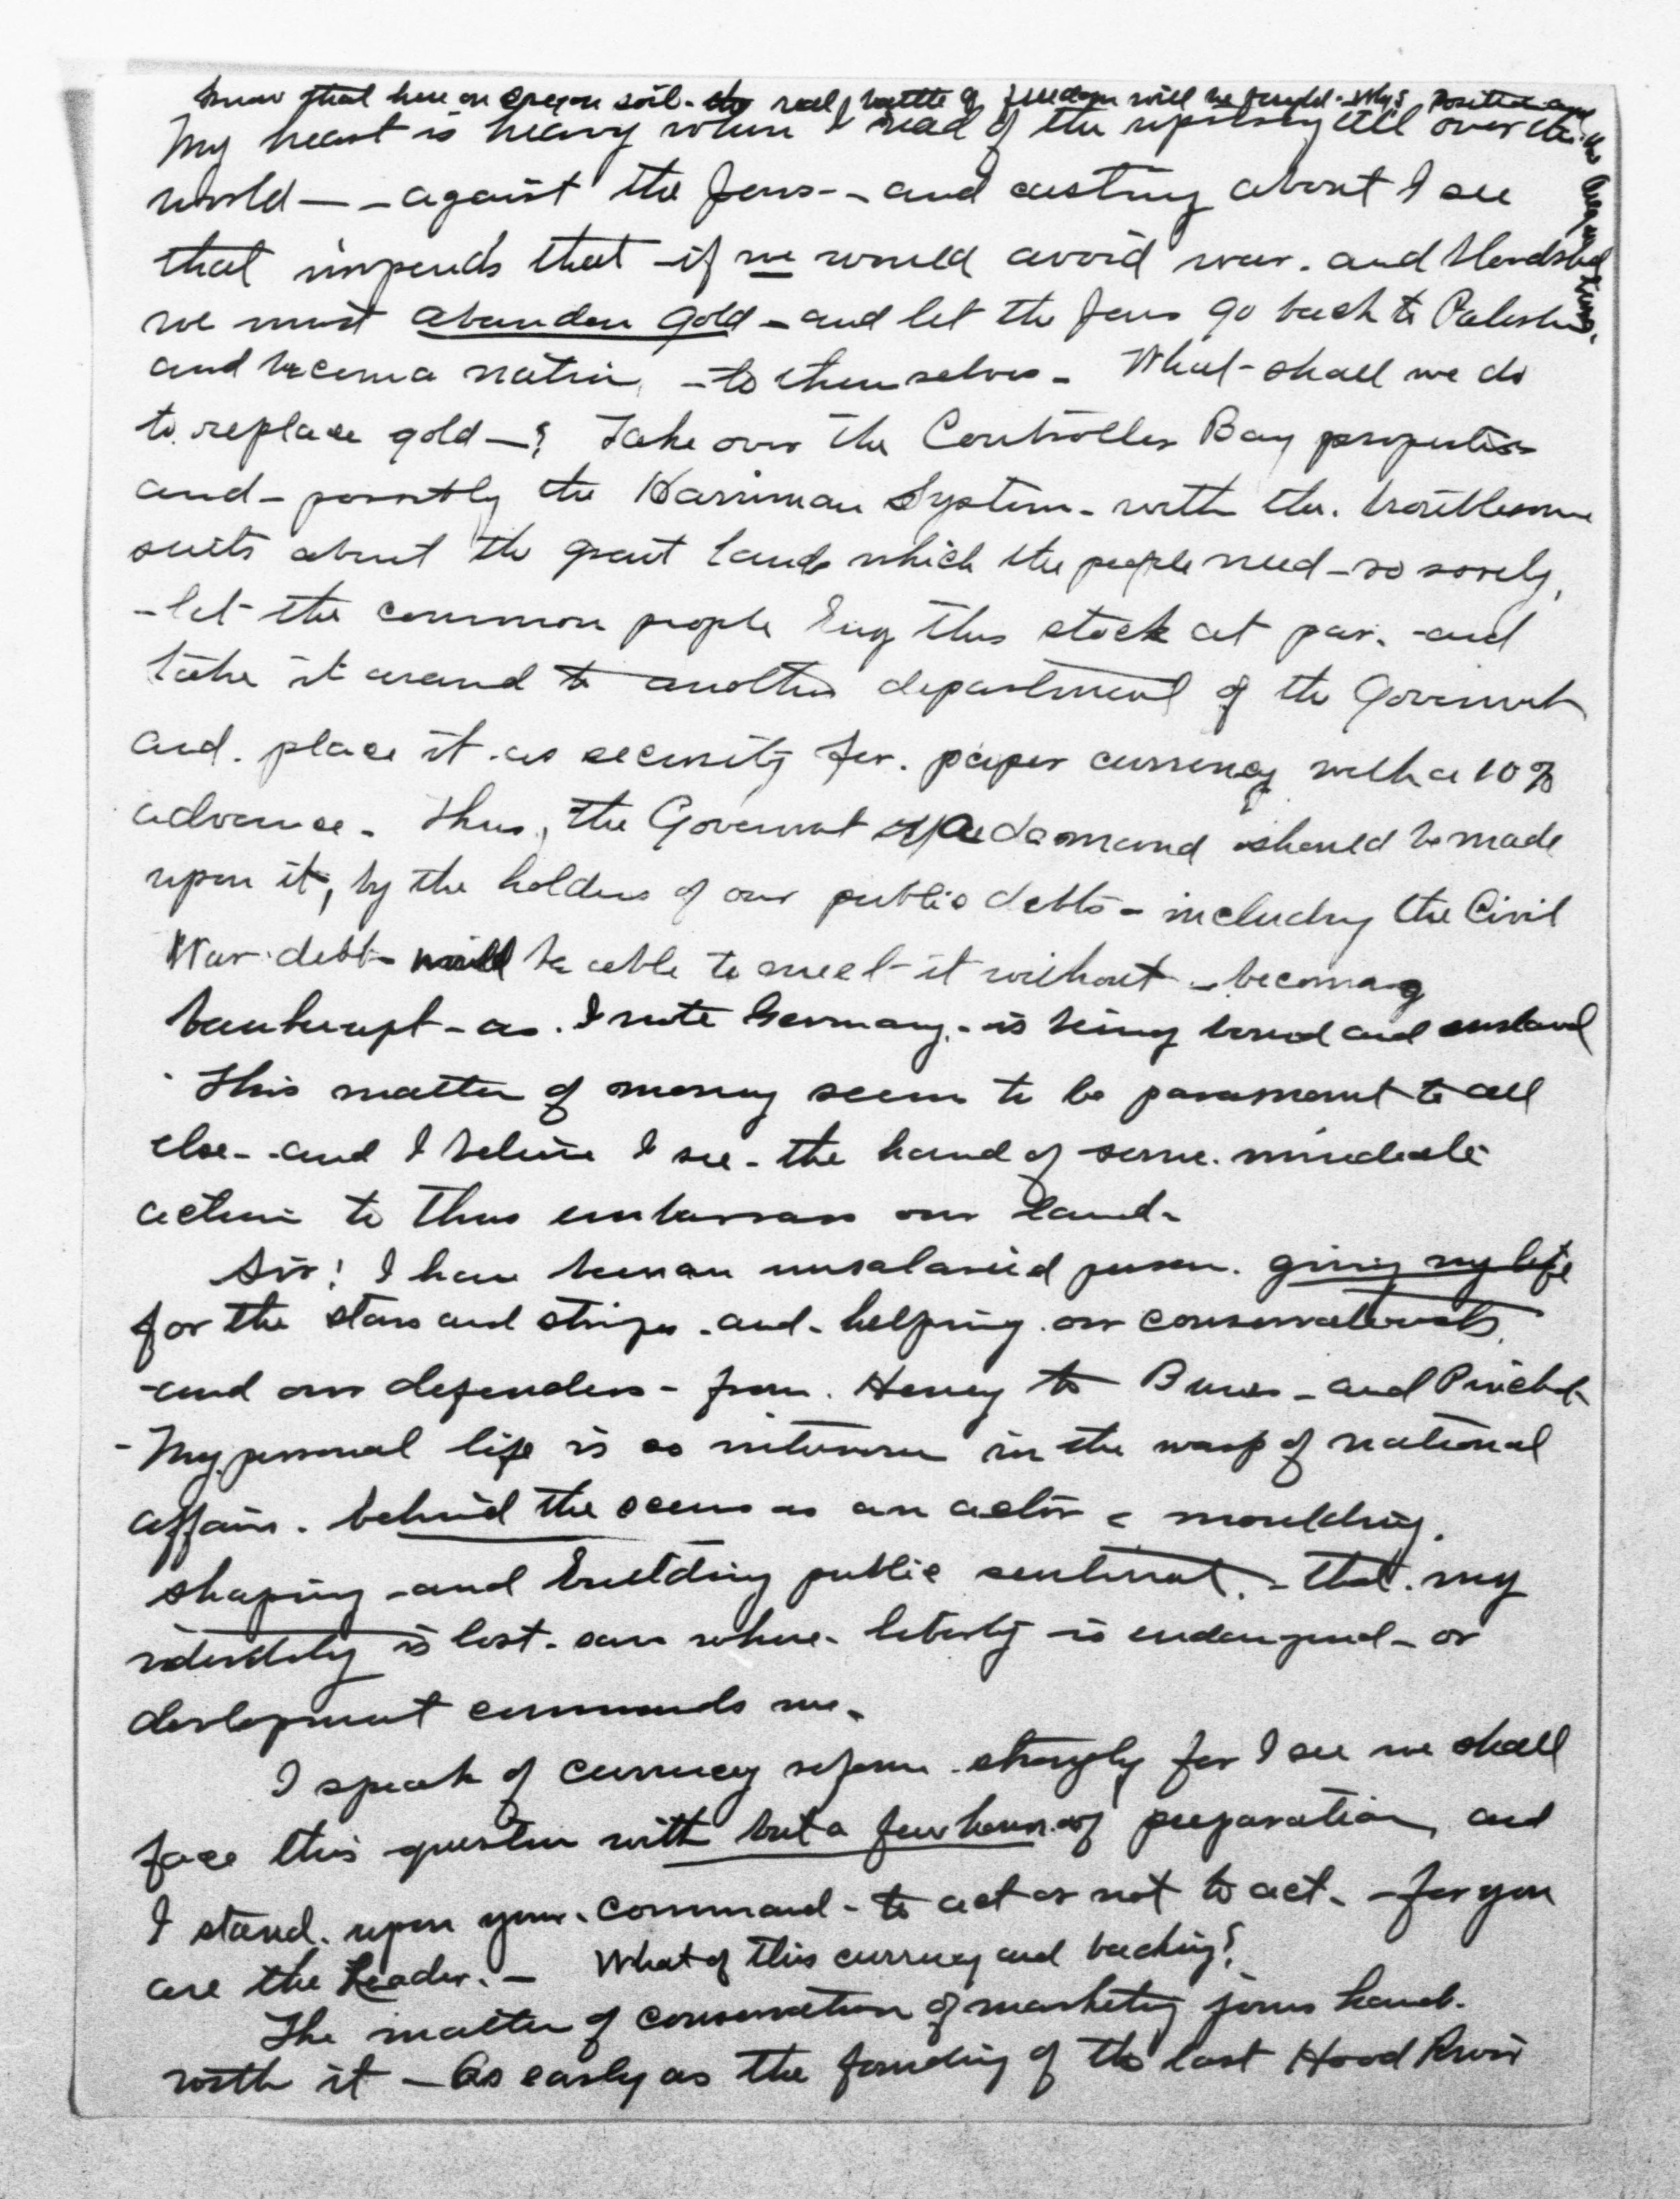 know that here on Oregon soil - the real battle of freedom will be fought - Why? Position and the Oregon
My heart is heavy when I read of the uprising all over the
world - - against the Jews - - and casting about I see
that impends that - if we would avoid war - and bloodshed
we must abandon gold - and let the Jews go back to Palestine
and become a nation, - to themselves - What - shall we do
to replace gold - ? Take over the Controller Bay properties
and - possibly the Harriman System - with the troublesome
suits about the grant lands which the people need - so sorely,
- let - the common people buy this stock at par. - and
take it around to another department of the Government
and. place it as security for. paper currency with a 10%
advance - Thus, the Government if a demand should be made
upon it, by the holders of our public debts - including the Civil
War debt - will be able to meet - it without - becoming
bankrupt - as. I note Germany. - is being bound and enslaved
This matter of money seems to be paramount to all
else - - and I believe I see - the hand of some.
action to thus embarrass our land -
Sir! I have been an unsalaried person. giving my life
for the stars and stripes - and - helping our conservationists
- and our defenders - from. Heney to Burns - and Pinchot
- My personal life is so interwoven in the warp of national
affairs. behind the scenes as an actor moulding.
shaping - and building public sentiment. - that. my
identity is lost - save where - liberty is endangered - or
development commands me.
I speak of currency reform - strongly for I see we shall
face this question with but a few hours of preparation, and
I stand. upon your command - to act or not to act - - for you
are the Leader. - What of this currency and backing?
The matter of conservation of marketing joins hands.
with it - As early as the founding of the last Hood River